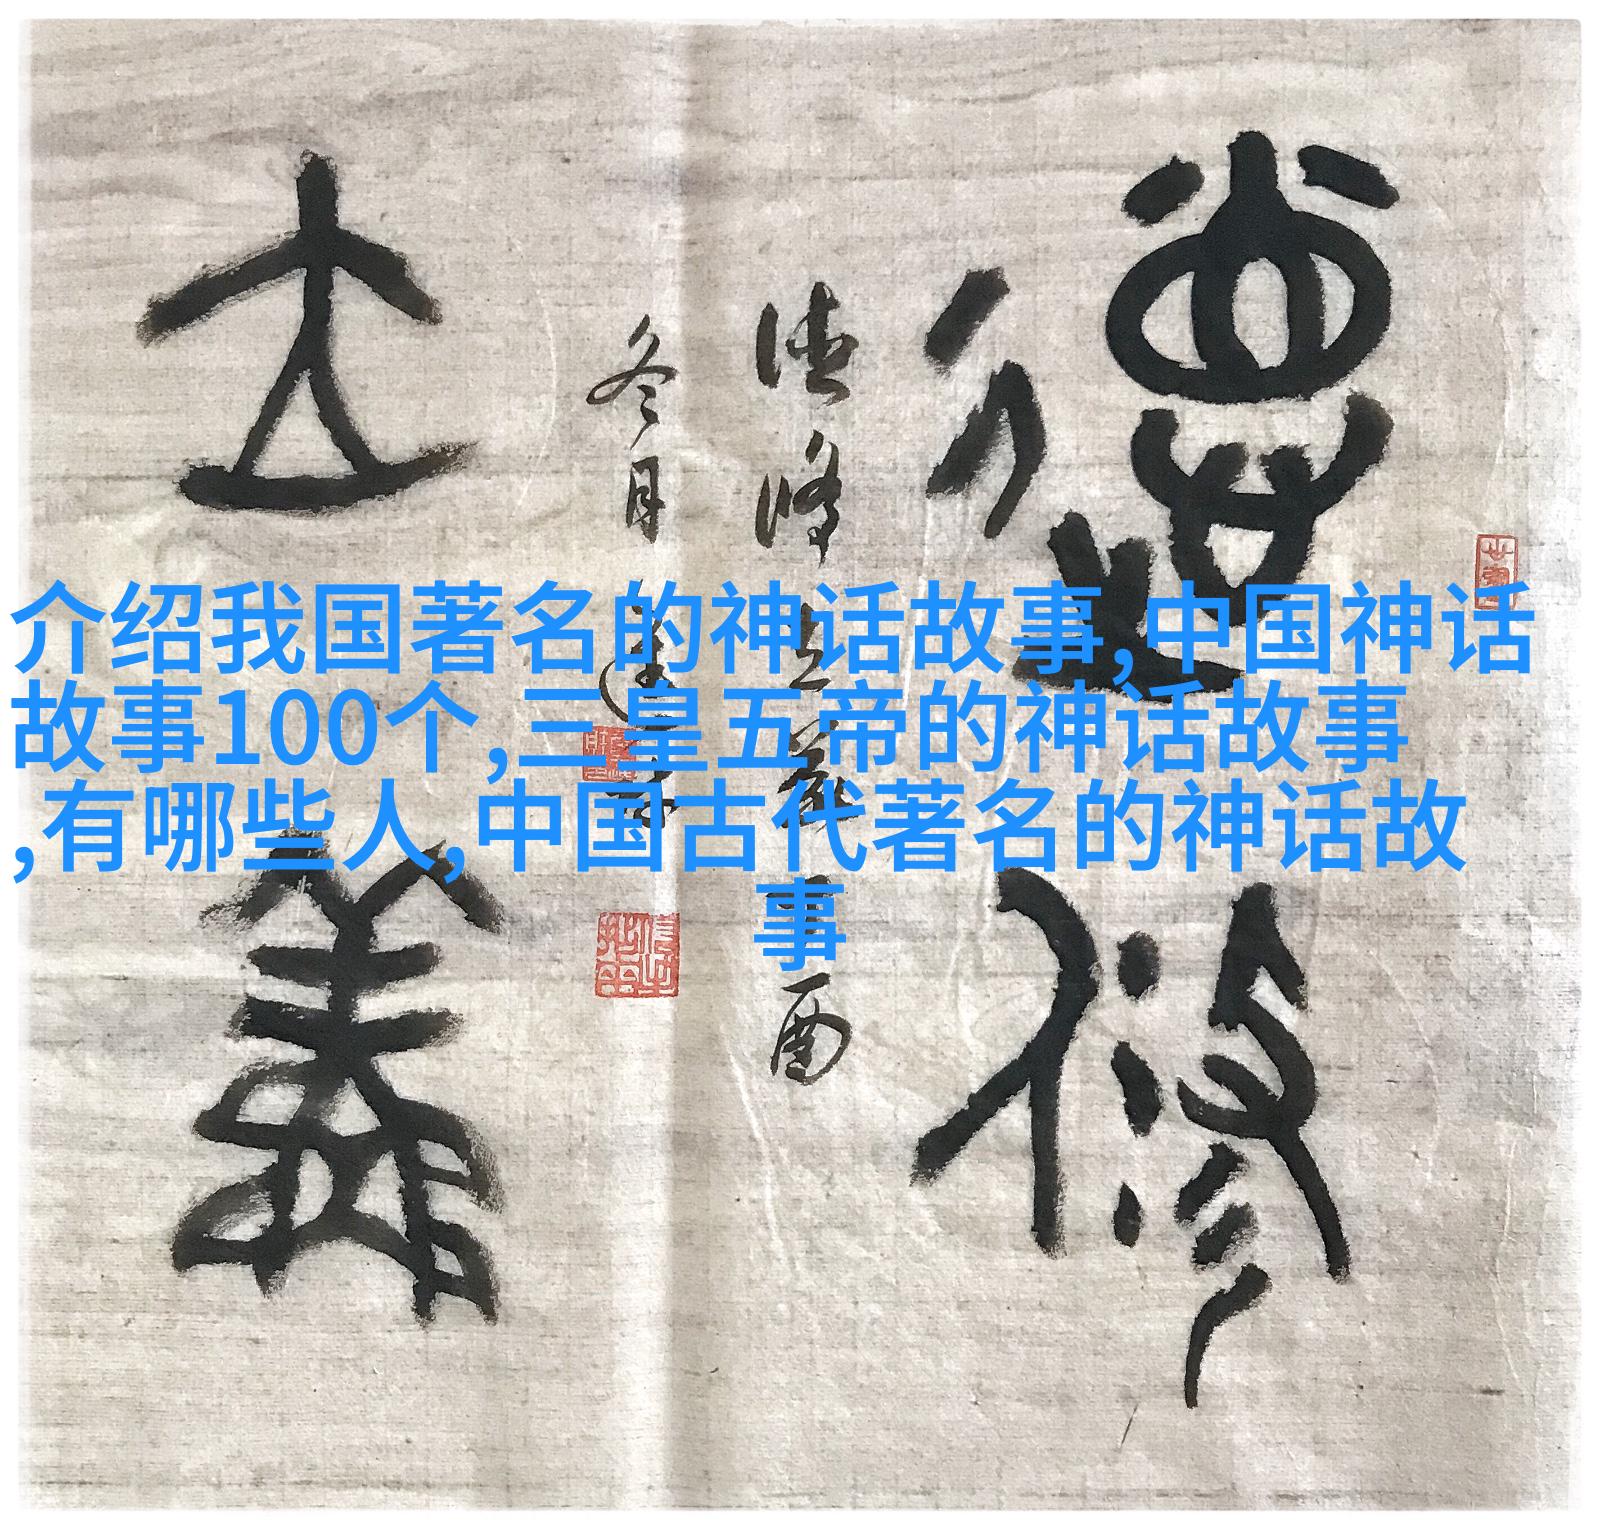 介绍我国著名的神话故事,中国神话
故事100个,三皇五帝的神话故事
,有哪些人,中国古代著名的神话故
事
德修
立義
德修立義
酉
冬月